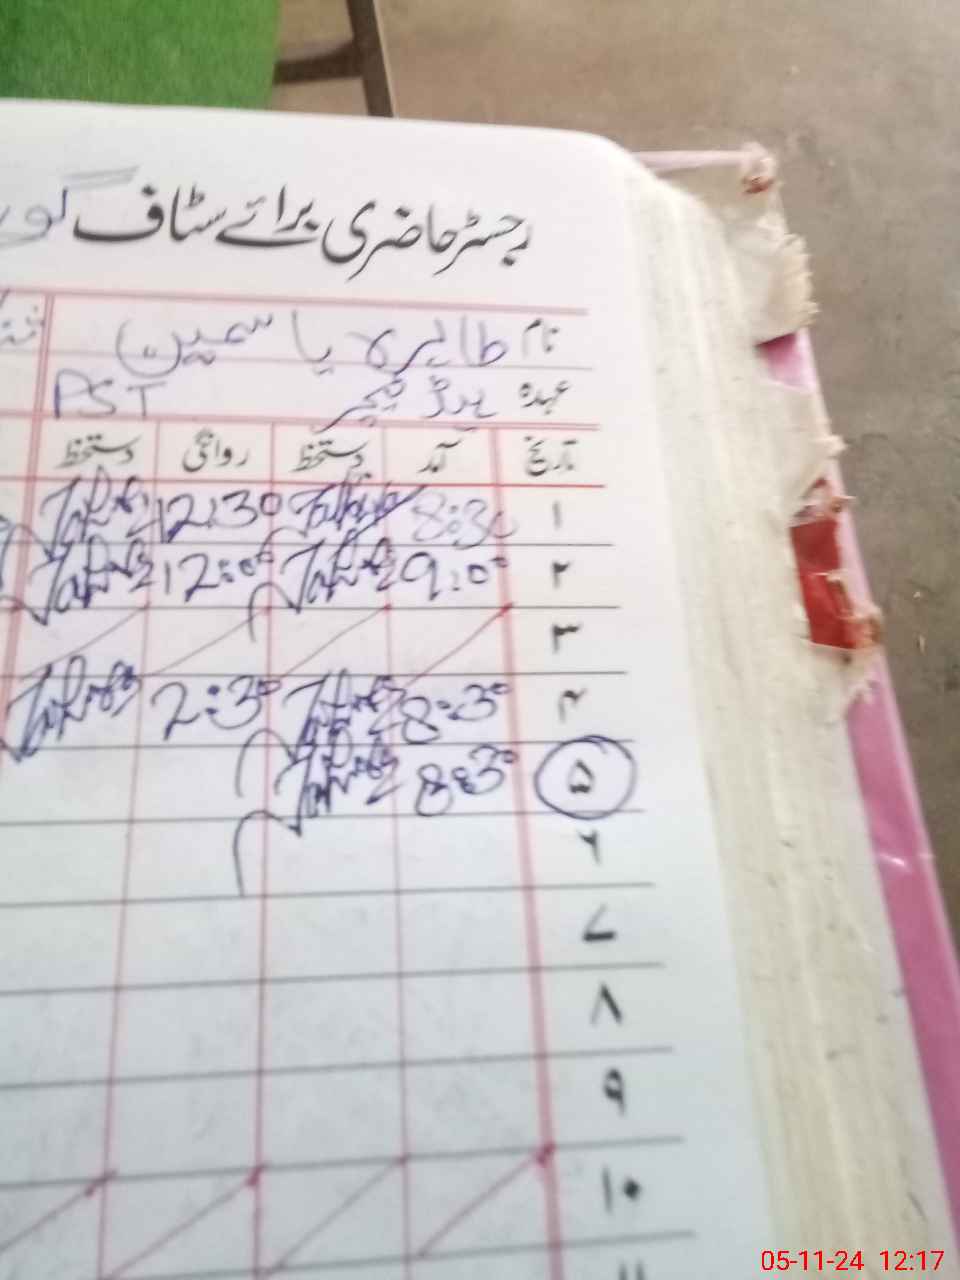 رجسٹر حاضری برائے سٹاف گور
نام طاہرہ یاسمین
عہدہ ہیڈ ٹیچر PST
تاریخ آمد دستخط روانگی دستخط
۱ 8:30 12:30
۲ 9:00 12:00
۳
۴ 8:30 2:30
۵ 8:30
۶
۷
۸
۹
۱۰
۱۱
05-11-24 12:17